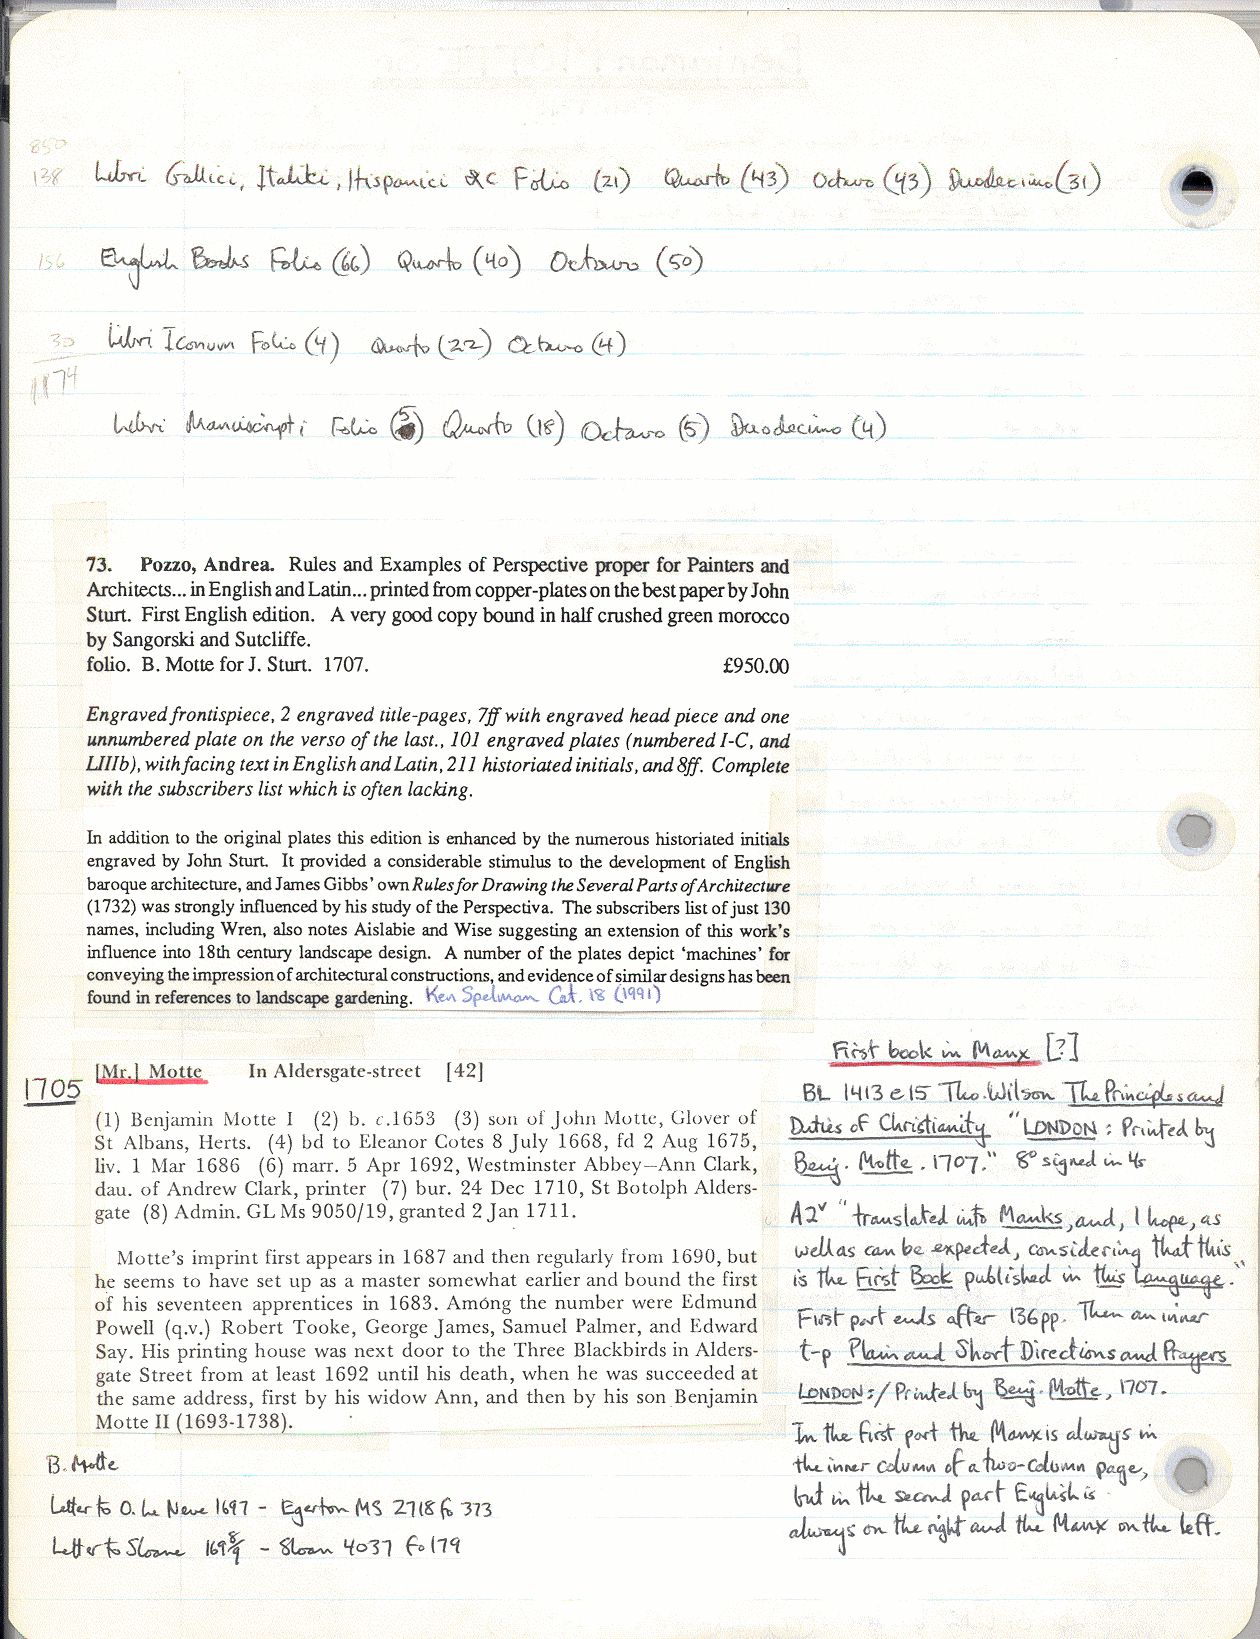 850
138 Libri Gallici, Italici, Hispanici &c Folio (21) Quarto (43) Octavo (43) Duodecimo (31)
156 English Books Folio (66) Quarto (40) Octavo (50)
30 Libri Iconum Folio (4) Quarto (22) Octavo (4)
1174
Libri Manuscripti Folio (5) Quarto (18) Octavo (5) Duodecimo (4)
73. Pozzo, Andrea. Rules and Examples of Perspective proper for Painters and
Architects... in English and Latin... printed from copper-plates on the best paper by John
Sturt. First English edition. A very good copy bound in half crushed green morocco
by Sangorski and Sutcliffe.
folio. B. Motte for J. Sturt. 1707. £950.00
Engraved frontispiece, 2 engraved title-pages, 7ff with engraved head piece and one
unnumbered plate on the verso of the last., 101 engraved plates (numbered I-C, and
LIIIb), with facing text in English and Latin, 211 historiated initials, and 8ff. Complete
with the subscribers list which is often lacking.
In addition to the original plates this edition is enhanced by the numerous historiated initials
engraved by John Sturt. It provided a considerable stimulus to the development of English
baroque architecture, and James Gibbs' own Rules for Drawing the Several Parts of Architecture
(1732) was strongly influenced by his study of the Perspectiva. The subscribers list of just 130
names, including Wren, also notes Aislabie and Wise suggesting an extension of this work's
influence into 18th century landscape design. A number of the plates depict 'machines' for
conveying the impression of architectural constructions, and evidence of similar designs has been
found in references to landscape gardening. Ken Spelman Cat. 18 (1991)
1705
[Mr.] Motte In Aldersgate-street [42]
(1) Benjamin Motte I (2) b. c.1653 (3) son of John Motte, Glover of
St Albans, Herts. (4) bd to Eleanor Cotes 8 July 1668, fd 2 Aug 1675,
liv. 1 Mar 1686 (6) marr. 5 Apr 1692, Westminster Abbey—Ann Clark,
dau. of Andrew Clark, printer (7) bur. 24 Dec 1710, St Botolph Alders-
gate (8) Admin. GL Ms 9050/19, granted 2 Jan 1711.
Motte's imprint first appears in 1687 and then regularly from 1690, but
he seems to have set up as a master somewhat earlier and bound the first
of his seventeen apprentices in 1683. Among the number were Edmund
Powell (q.v.) Robert Tooke, George James, Samuel Palmer, and Edward
Say. His printing house was next door to the Three Blackbirds in Alders-
gate Street from at least 1692 until his death, when he was succeeded at
the same address, first by his widow Ann, and then by his son Benjamin
Motte II (1693-1738).
B. Motte
Letter to O. Le Neve 1697 - Egerton MS 2718 fo 373
Letter to Sloane 169 8/9 - Sloan 4037 fo 179
First book in Manx [?]
BL 1413 e 15 Tho. Wilson The Principles and
Duties of Christianity "LONDON: Printed by
Benj. Motte. 1707." 8° signed in 4s
A2v "translated into Manks, and, I hope, as
well as can be expected, considering that this
is the First Book published in this Language."
First part ends after 136pp. Then an inner
t-p Plain and Short Directions and Prayers
LONDON:/Printed by Benj. Motte, 1707.
In the first part the Manx is always in
the inner column of a two-column page,
but in the second part English is
always on the right and the Manx on the left.